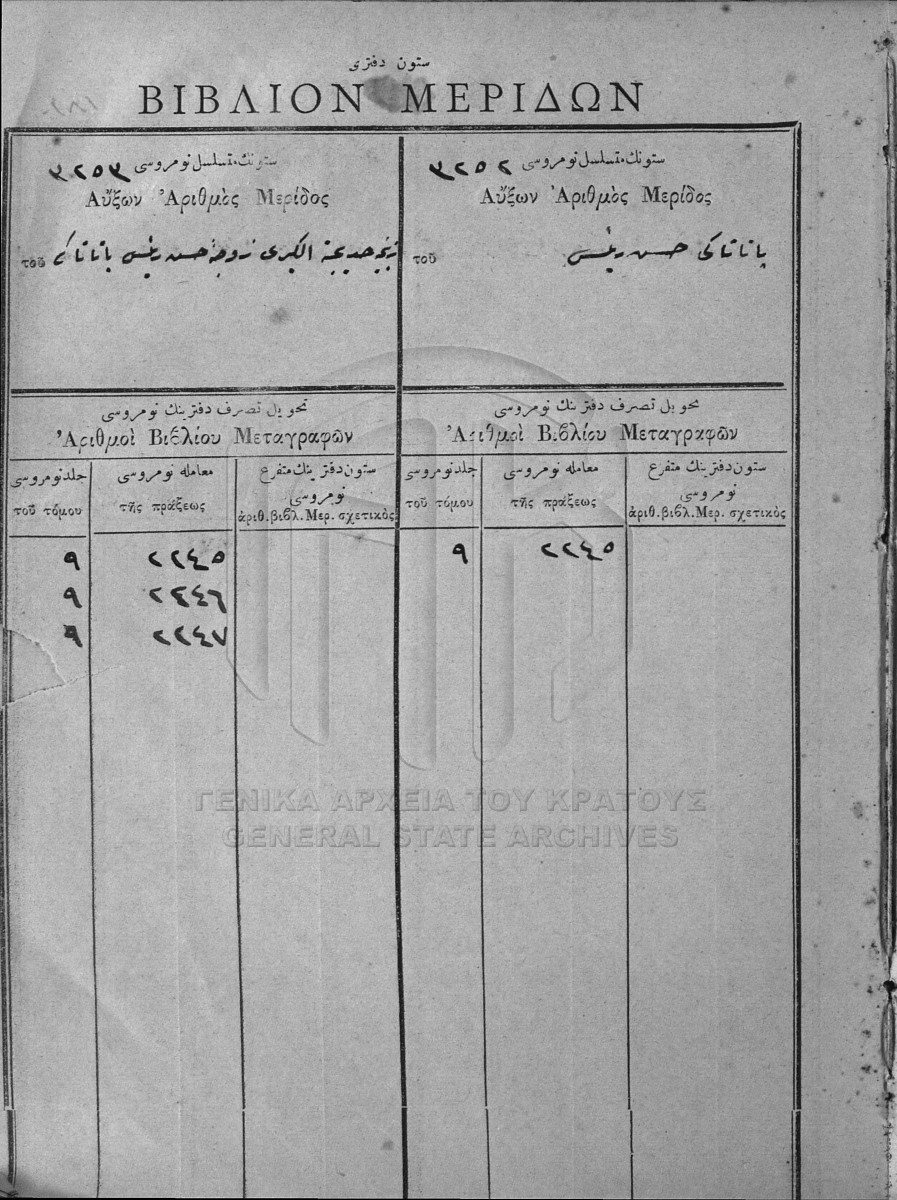 ستون دفتری
ΒΙΒΛΙΟΝ ΜΕΡΙΔΩΝ
ستونك متسلسل نومروسی ٣٢٥٢
Αὔξων Ἀριθμὸς Μερίδος
τοῦ
پاتاتاكی حسن رئیس
تحویل تصرف دفترینك نومروسی
Ἀριθμοὶ Βιβλίου Μεταγραφῶν
جلد نومروسی
τοῦ τόμου
معامله نومروسی
τῆς πράξεως
ستون دفترینك متفرع
نومروسی
ἀριθ. βιβλ. Μερ. σχετικὸς
٩ ٢٢٤٥
ستونك متسلسل نومروسی ٣٢٥٣
Αὔξων Ἀριθμὸς Μερίδος
τοῦ
خدیجة الكبری زوجهٔ حسن رئیس پاتاتاكی
تحویل تصرف دفترینك نومروسی
Ἀριθμοὶ Βιβλίου Μεταγραφῶν
جلد نومروسی
τοῦ τόμου
معامله نومروسی
τῆς πράξεως
ستون دفترینك متفرع
نومروسی
ἀριθ. βιβλ. Μερ. σχετικὸς
٩ ٢٢٤٥
٩ ٢٢٤٦
٩ ٢٢٤٧
ΓΕΝΙΚΑ ΑΡΧΕΙΑ ΤΟΥ ΚΡΑΤΟΥΣ
GENERAL STATE ARCHIVES